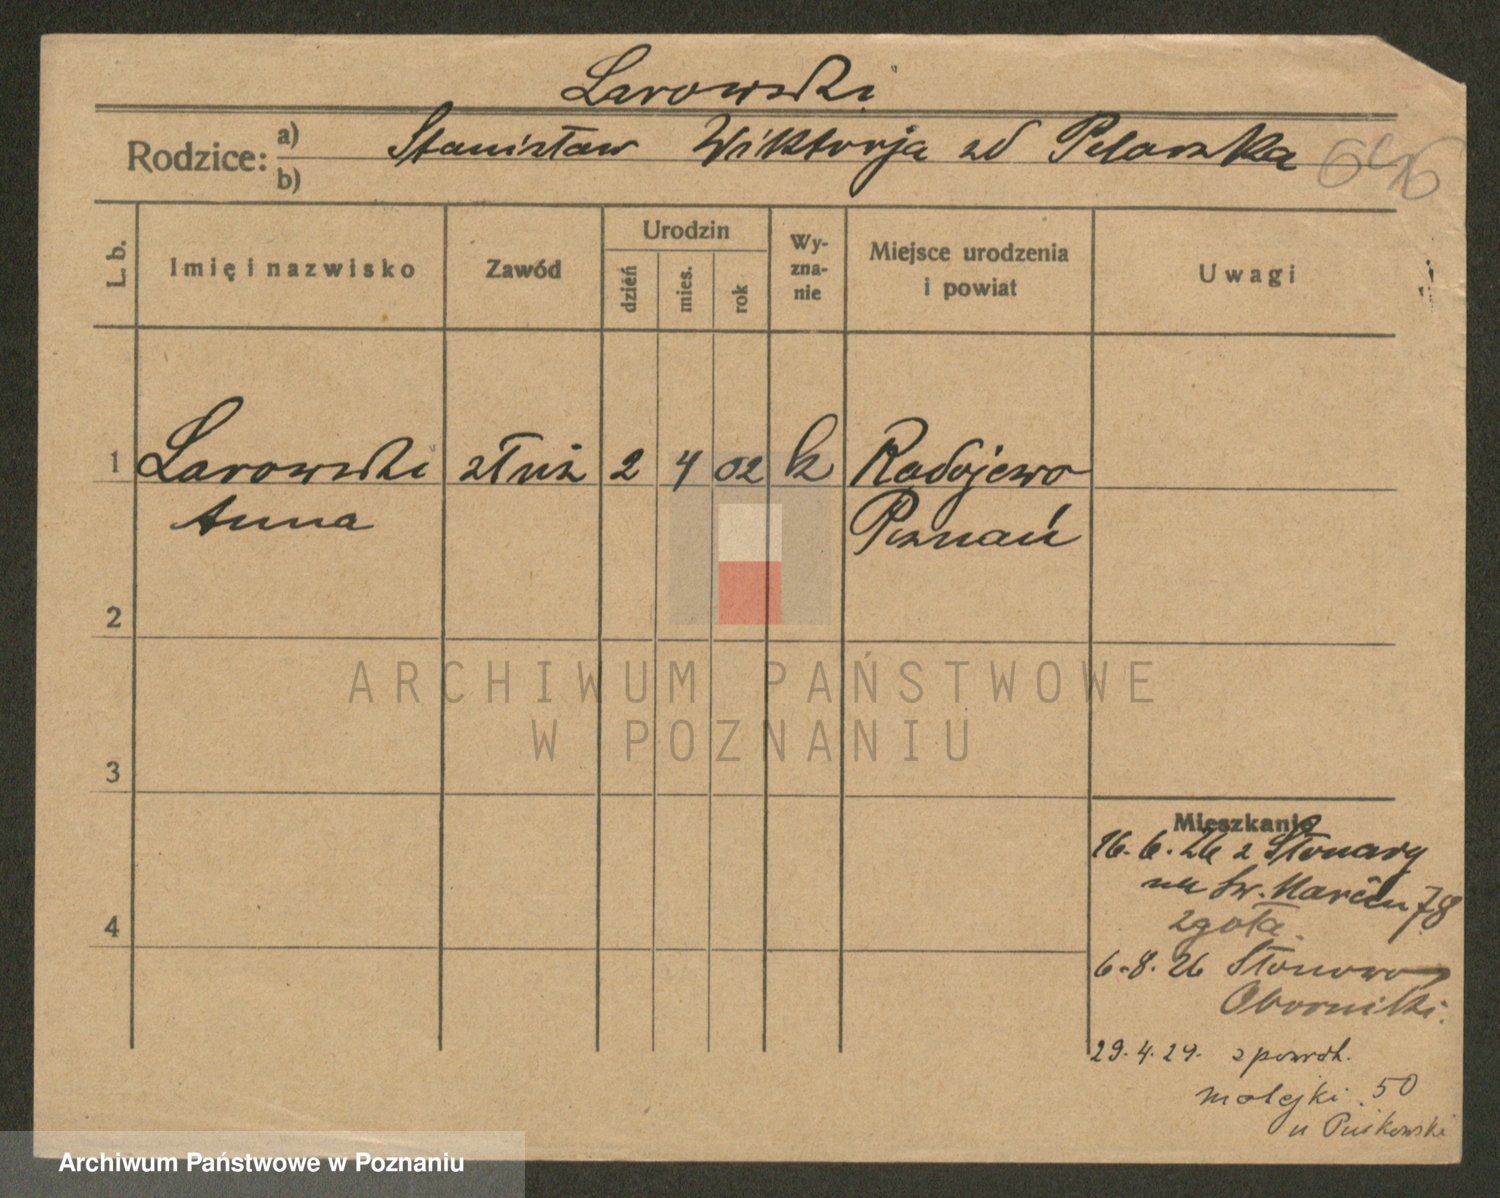 Larowski
Rodzice: a) b) Stanisław Wiktorja zd Pelarzka
L. b.
Imię i nazwisko
Zawód
Urodzin
dzień
mies.
rok
Wy-
zna-
nie
Miejsce urodzenia
i powiat
Uwagi
1 Larowski służ 2 4 02 k Radojewo
Anna Poznań
2
3
4
Mieszkanie
16. 6. 26 z
na Św. Marcin 78
6-8. 26
Oborniki.
29. 4. 29. z powroł.
matejki 50
u
ARCHIWUM PAŃSTWOWE
W POZNANIU
Archiwum Państwowe w Poznaniu